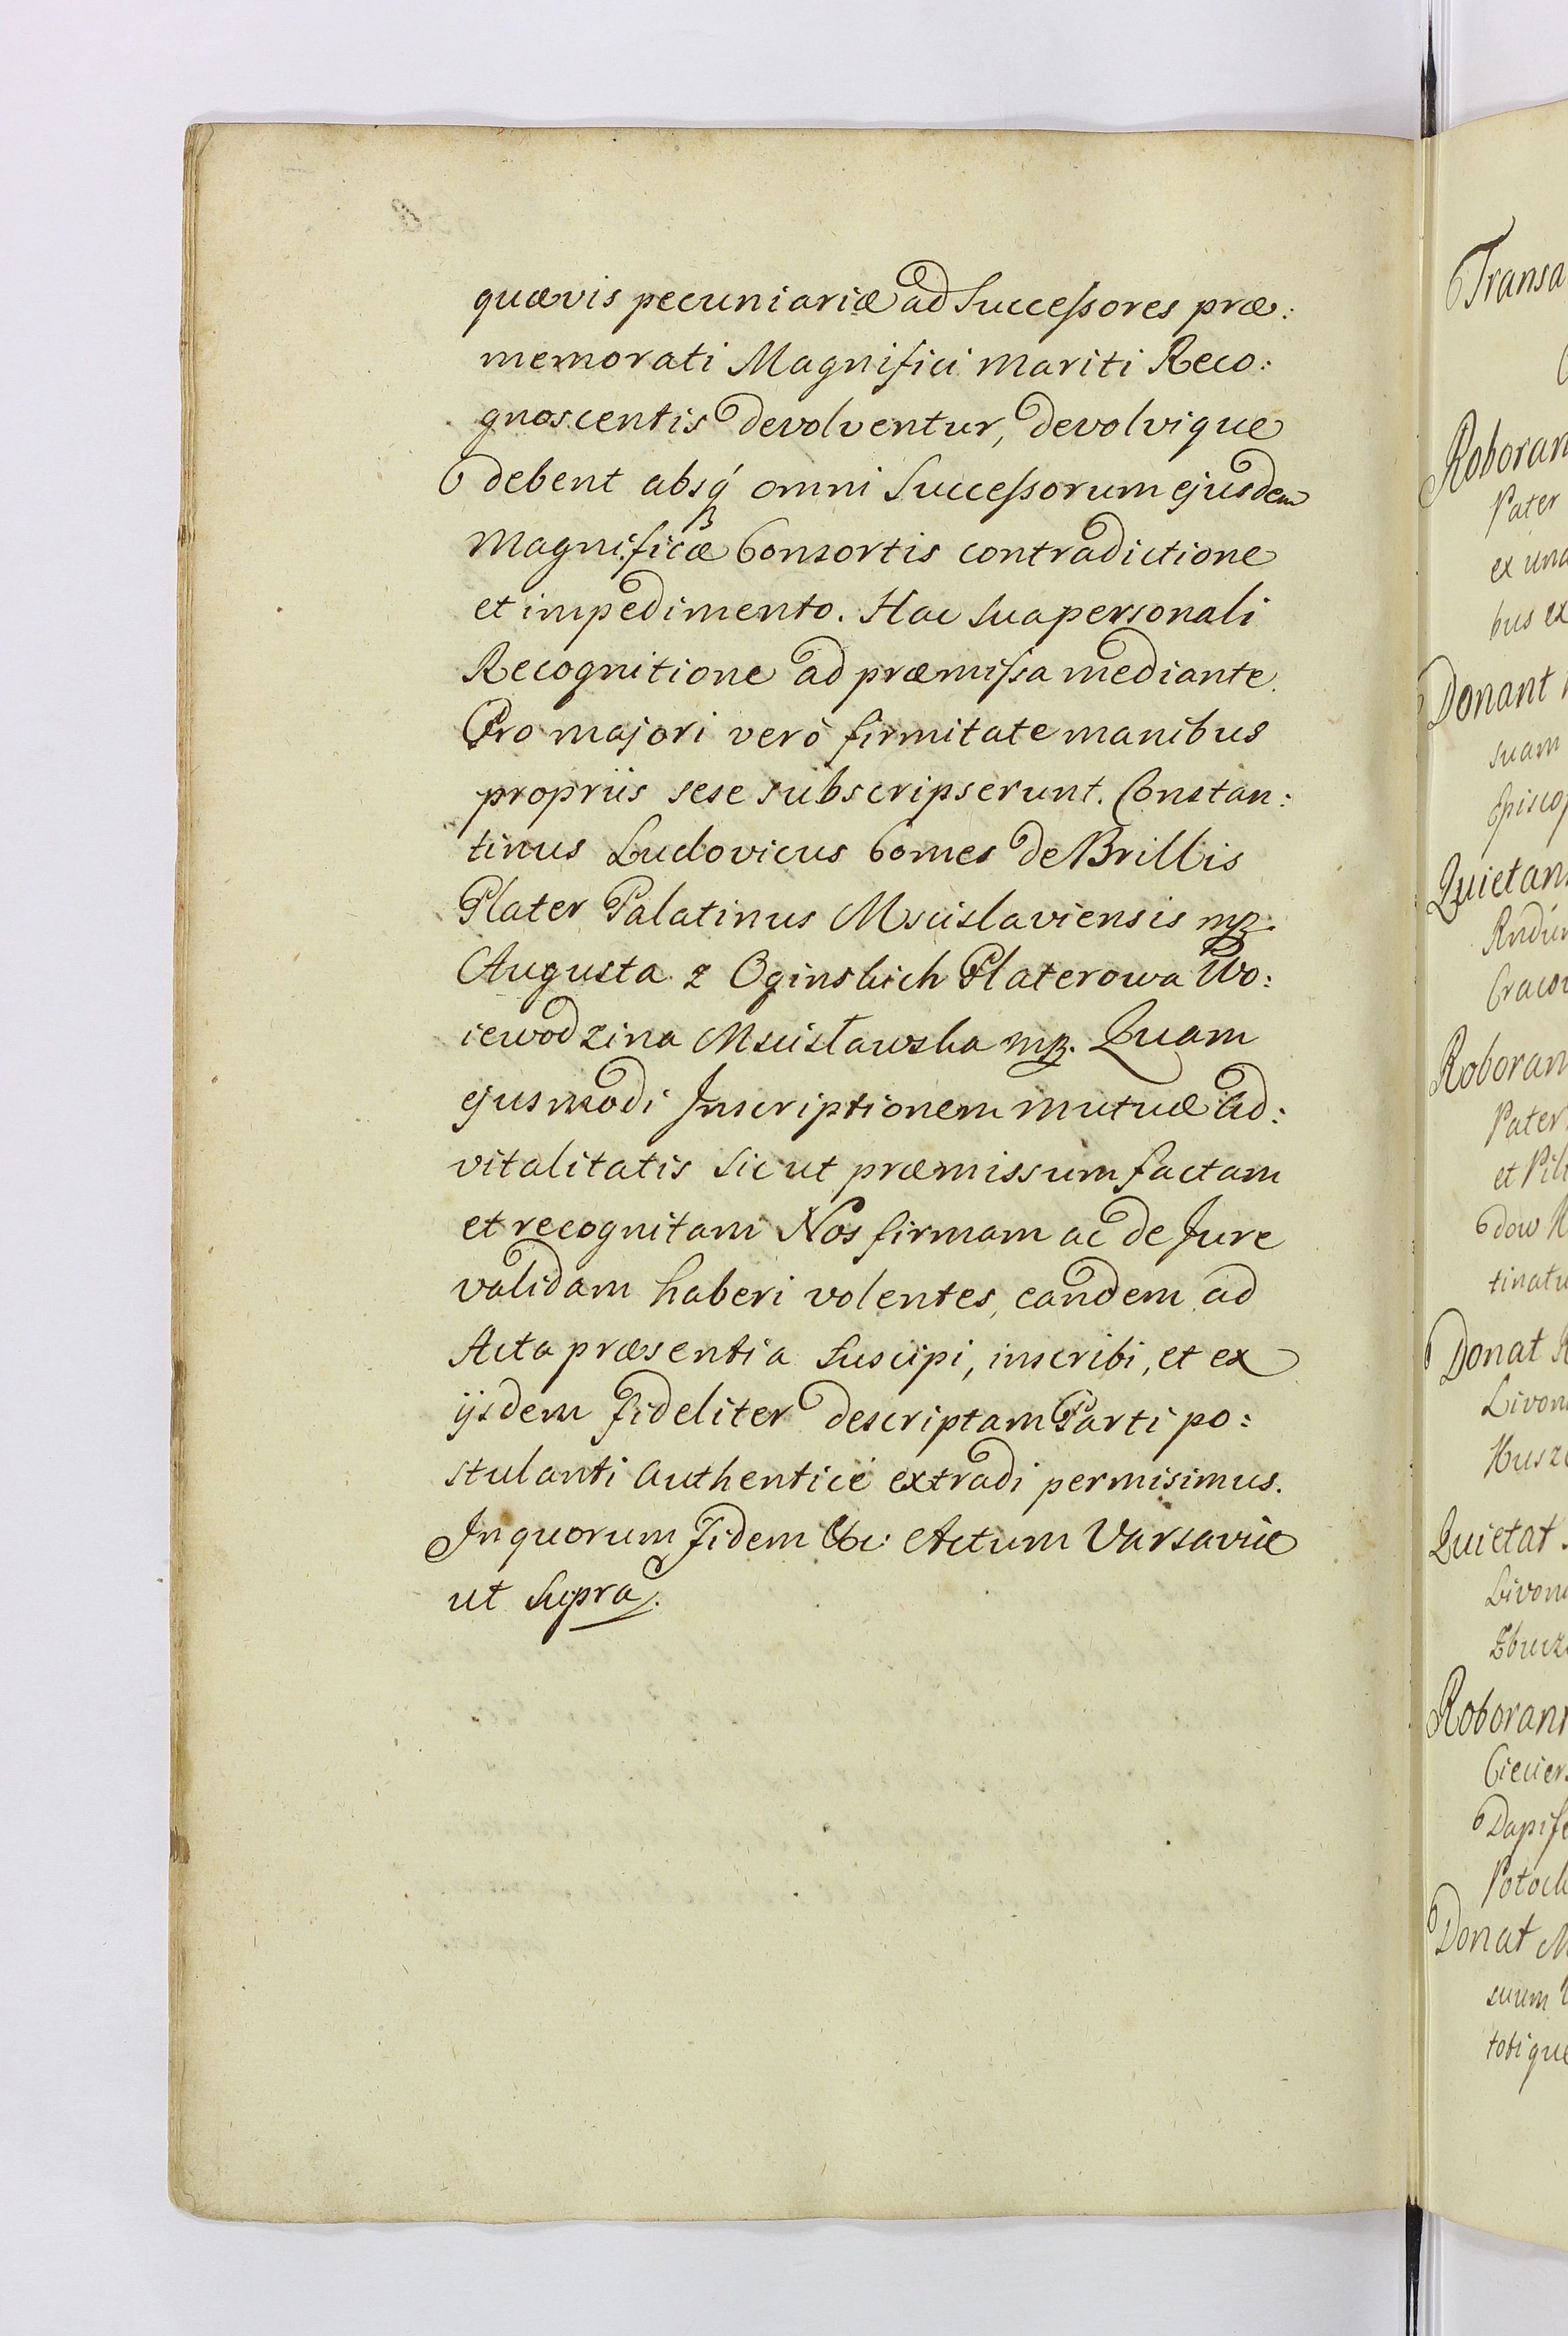 quævis pecuniariæ ad Successores præ:
memorati Magnifici Mariti Reco:
gnoscentis devolventur, devolvique
debent absq́ omni Successorum ejusdem
Magnificæ Consortis contradictione
et impedimento. Hac Sua personali
Recognitione ad præmissa mediante.
Pro majori verò firmitate manibus
propriis sese subscripserunt. Constan:
tinus Ludovicus Comes de Brillis
Plater Palatinus Mscislaviensis mp.
Augusta z Oginskich Platerowa Wo:
iewodzina Mscisławska mp. Quam
ejusmodi Inscriptionem mutuæ ad:
vitalitatis sicut præmissum factam
et recognitam Nos firmam ac de Jure
validam haberi volentes, eandem ad
Acta præsentia Suscipi, inscribi, et ex
ijsdem fideliter descriptam Parti po:
stulanti authenticè extradi permisimus.
In quorum fidem &c: Actum Varsaviæ
ut Supra.
Transa
Roboran
Pater
ex una
bus ex
Donant
suam
Episcop
Quietan
Cracov
Roboran
Pater
et Pili
dow
tinatu
Donat
Livon
Husz
Quietat
Livon
Roborant
Giecier
Dapife
Potock
Donat M
suum
totique